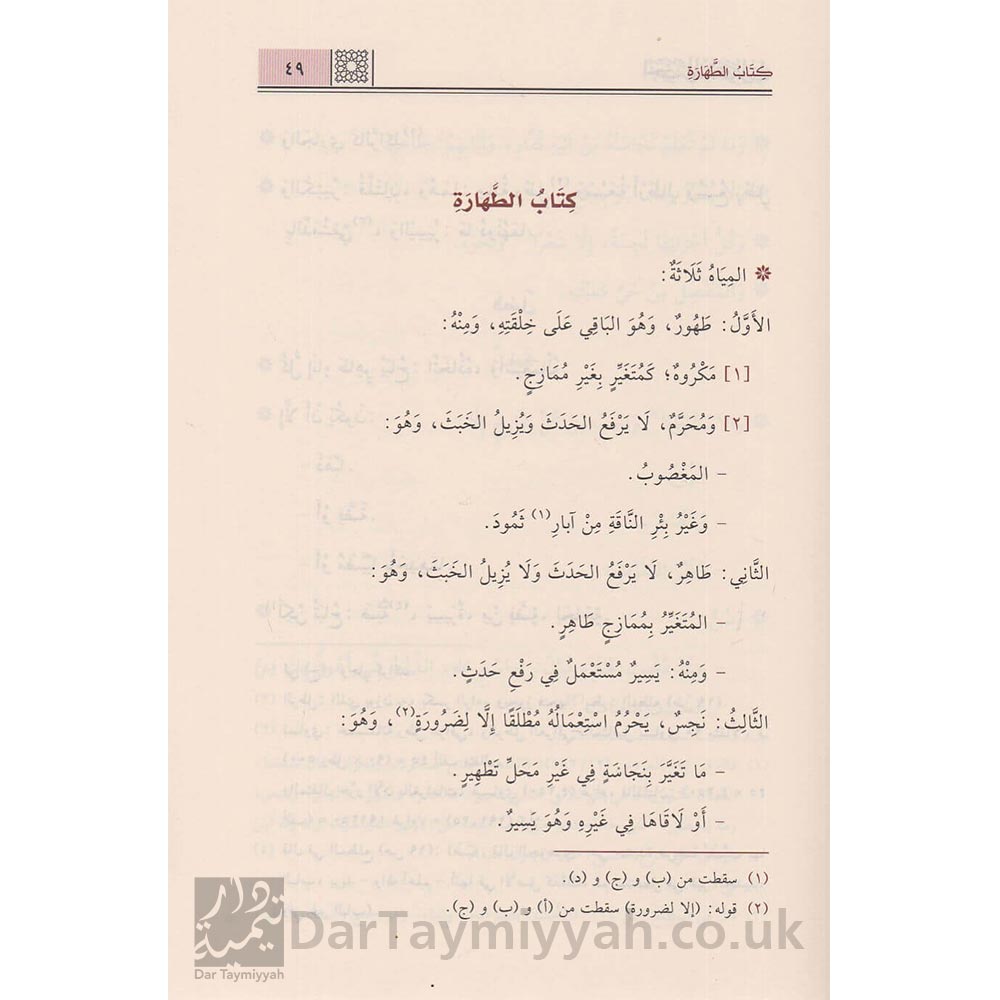 كِتَابُ الطَّهَارَةِ
٤٩
كِتَابُ الطَّهَارَةِ
المِيَاهُ ثَلَاثَةٌ:
الأَوَّلُ: طَهُورٌ، وَهُوَ البَاقِي عَلَى خِلْقَتِهِ، وَمِنْهُ:
[١] مَكْرُوهٌ؛ كَمُتَغَيِّرٍ بِغَيْرِ مُمَازِجٍ.
[٢] وَمُحَرَّمٌ، لَا يَرْفَعُ الحَدَثَ وَيُزِيلُ الخَبَثَ، وَهُوَ:
- المَغْصُوبُ.
- وَغَيْرُ بِئْرِ النَّاقَةِ مِنْ آبارِ(١) ثَمُودَ.
الثَّانِي: طَاهِرٌ، لَا يَرْفَعُ الحَدَثَ وَلَا يُزِيلُ الخَبَثَ، وَهُوَ:
- المُتَغَيِّرُ بِمُمَازِجٍ طَاهِرٍ.
- وَمِنْهُ: يَسِيرٌ مُسْتَعْمَلٌ فِي رَفْعِ حَدَثٍ.
الثَّالِثُ: نَجِسٌ، يَحْرُمُ اسْتِعْمَالُهُ مُطْلَقًا إِلَّا لِضَرُورَةٍ(٢)، وَهُوَ:
- مَا تَغَيَّرَ بِنَجَاسَةٍ فِي غَيْرِ مَحَلِّ تَطْهِيرٍ.
- أَوْ لَاقَاهَا فِي غَيْرِهِ وَهُوَ يَسِيرٌ.
(١) سقطت من (ب) و (ج) و (د).
(٢) قوله: (إلا لضرورة) سقطت من (أ) و (ب) و (ج).
دار تيمية
Dar Taymiyyah
DarTaymiyyah.co.uk